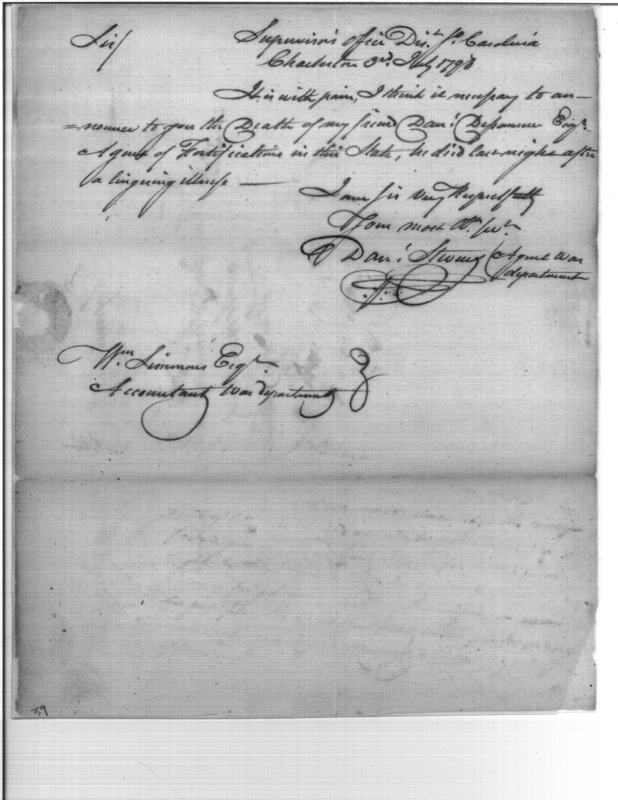 Sir/ Supervisor's office Dist. So. Carolina
Charleston 3rd. July 1798
It is with pain, I think it necessary to an-
=nounce to you the Death of my friend Dan'l Desaussure Esqr.
Agent of Fortifications in this State, he died last night after
a lingering illness —
I am Sir very Respectfully
Your most Ob. Servt.
Dan'l Stevens Agent War
department
Wm. Simmons Esqr.
Accountant War department
39